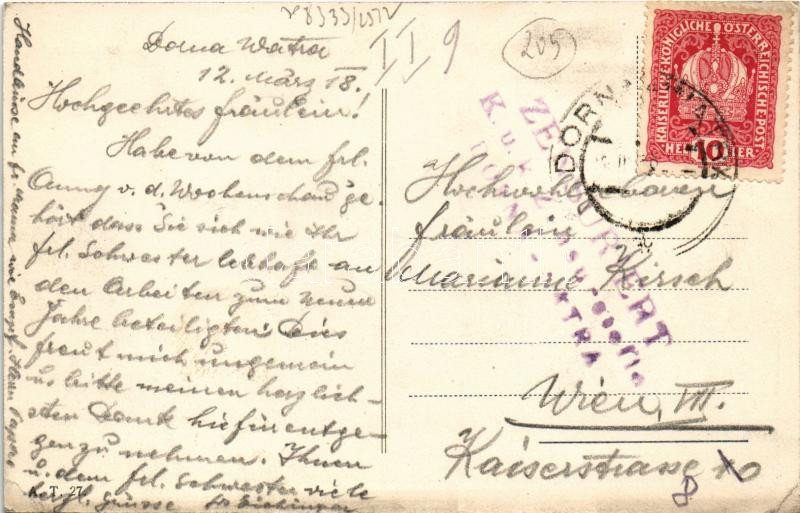 8333/2572
II 9
205
Dorna Watra
12. März 18.
Hochgeehrtes Fräulein!
Habe von dem Frl.
Anny v. d. Wochenschau ge-
hört dass Sie sich wie Ihr
Frl. Schwester lebhaft an
den Arbeiten zum neuen
Jahre beteiligten. Dies
freut mich ungemein
u. bitte meinen herzlich-
sten Dank hiefür entge-
genzunehmen. Ihnen
u. dem Frl. Schwester viele
herzl. Grüsse
K. T. 27
Handküsse an
KAISERLICHE KÖNIGLICHE ÖSTERREICHISCHE POST
10 HELLER 10
DORNA WATRA
ZENSURIERT
K. u. K.
DORNA-WATRA
Hochwohlgeboren
Fräulein
Marianne Kirsch
Wien, VII.
Kaiserstrasse 10
8